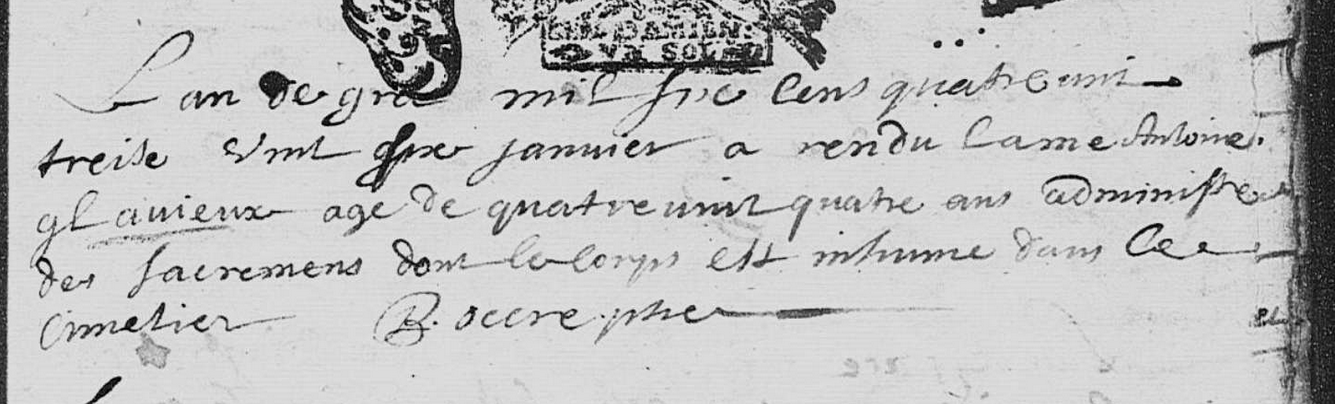 GEN. DAMIENS
UN SOL
L an de gra mil six cens quatre uint
treise Vint six januier a rendu lame Antoine
glauieux age de quatre uint quatre ans administre
des sacremens dont le corps est inhume dans ce
Cimetier